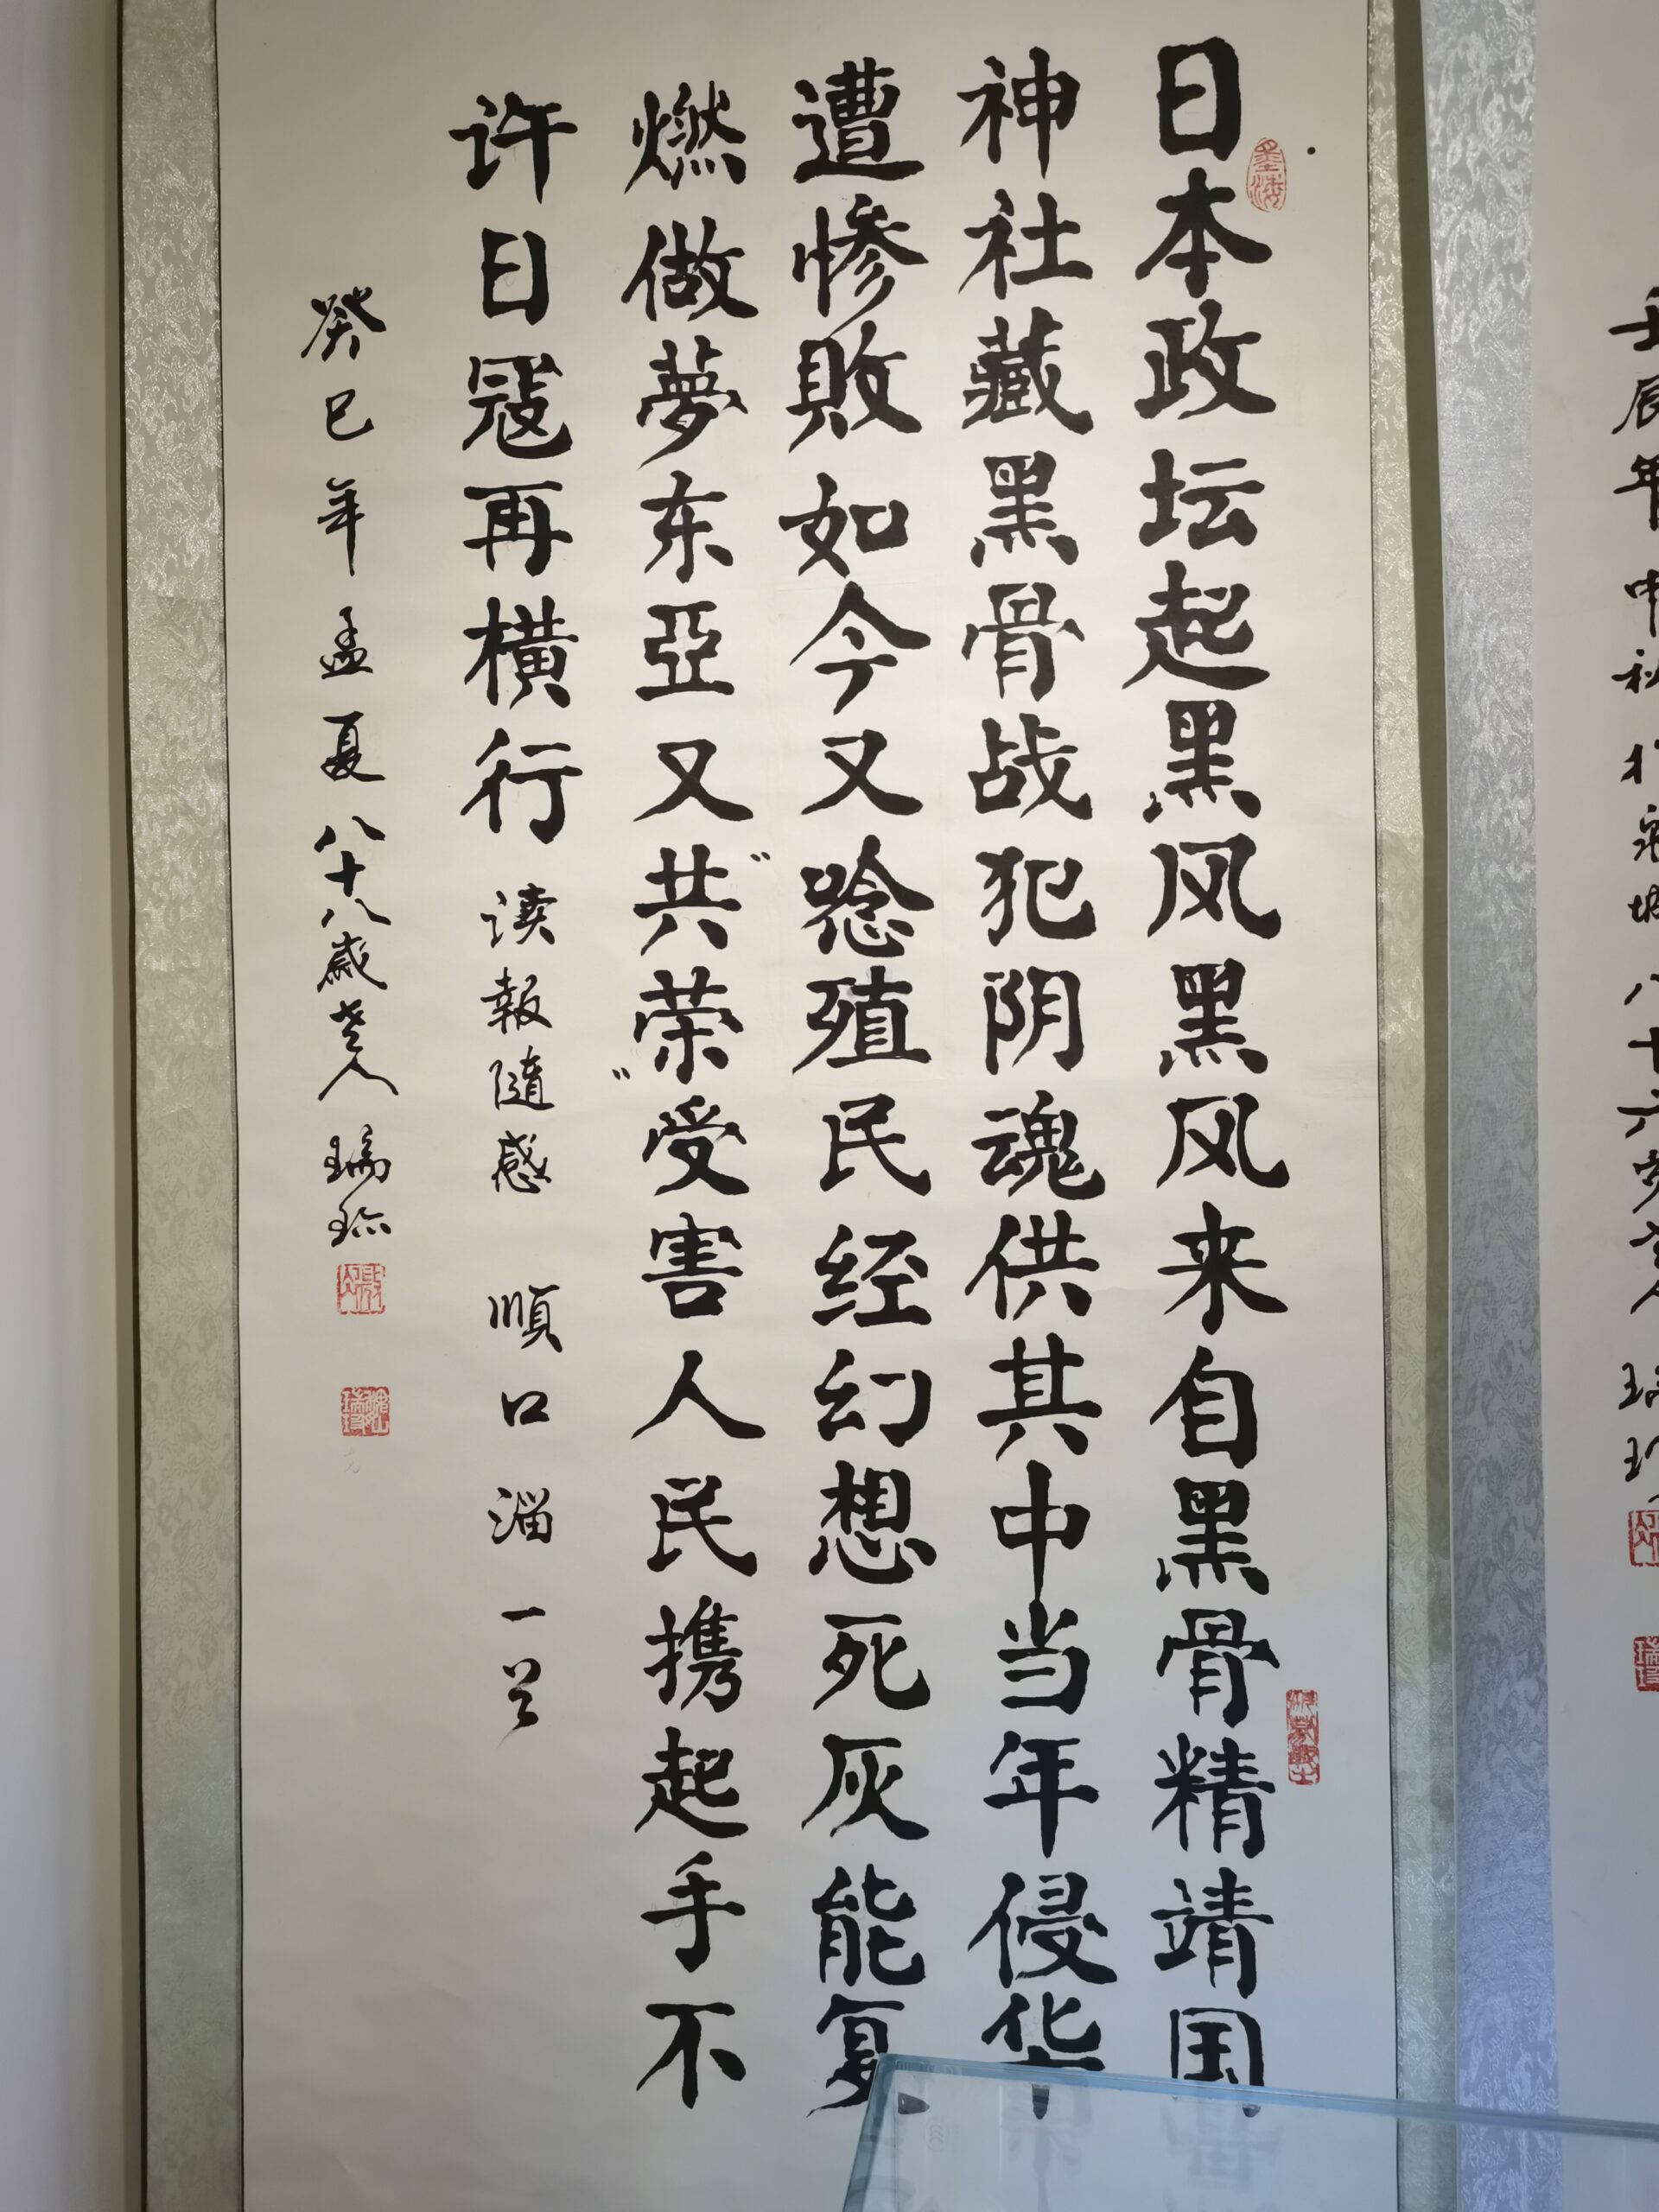 壬辰年中秋
八十六岁老人
墨海
日本政坛起黑风黑风来自黑骨精靖国
神社藏黑骨战犯阴魂供其中当年侵华
遭惨敗如今又唸殖民经幻想死灰能复
燃做夢东亞又"共荣"受害人民携起手不
许日寇再横行 读報隨感 順口淄一首
癸巳年孟夏八十八歲老人 瑞珍